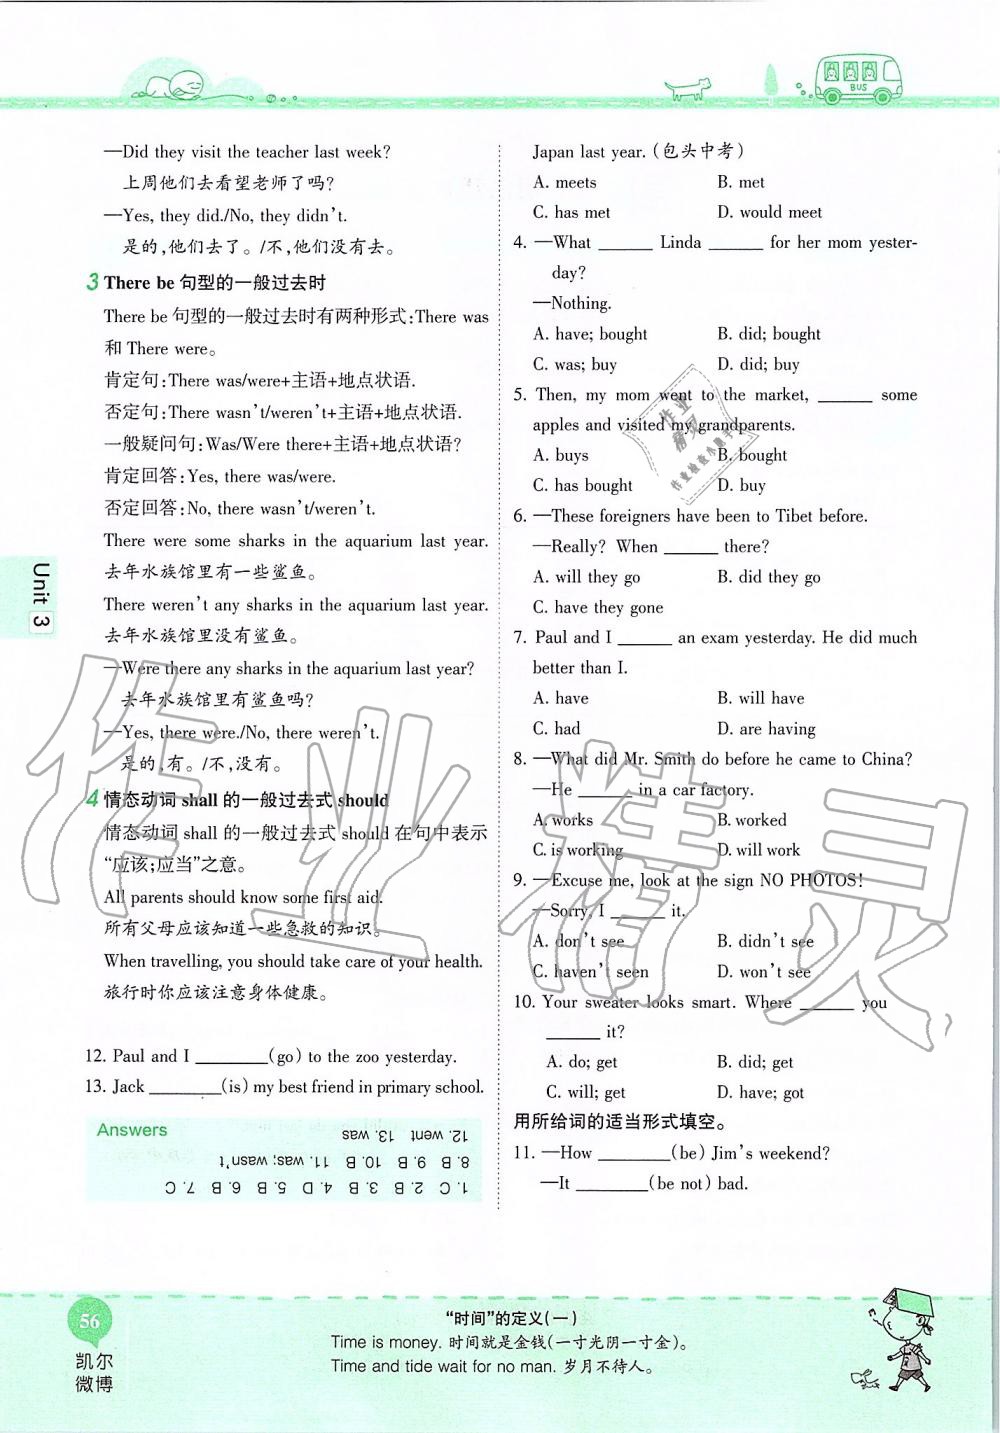 BUS
—Did they visit the teacher last week?
上周他们去看望老师了吗?
—Yes, they did./No, they didn't.
是的,他们去了。/不,他们没有去。
3 There be 句型的一般过去时
There be 句型的一般过去时有两种形式:There was
和 There were。
肯定句:There was/were+主语+地点状语.
否定句:There wasn't/weren't+主语+地点状语.
一般疑问句:Was/Were there+主语+地点状语?
肯定回答:Yes, there was/were.
否定回答:No, there wasn't/weren't.
There were some sharks in the aquarium last year.
去年水族馆里有一些鲨鱼。
There weren't any sharks in the aquarium last year.
去年水族馆里没有鲨鱼。
—Were there any sharks in the aquarium last year?
去年水族馆里有鲨鱼吗?
—Yes, there were./No, there weren't.
是的,有。/不,没有。
4 情态动词 shall 的一般过去式 should
情态动词 shall 的一般过去式 should 在句中表示
“应该;应当”之意。
All parents should know some first aid.
所有父母应该知道一些急救的知识。
When travelling, you should take care of your health.
旅行时你应该注意身体健康。
12. Paul and I ________(go) to the zoo yesterday.
13. Jack ________(is) my best friend in primary school.
Answers
1. C 2. B 3. B 4. D 5. B 6. B 7. C
8. B 9. B 10. B 11. was; wasn't
12. went 13. was
Japan last year. (包头中考)
A. meets B. met
C. has met D. would meet
4. —What ______ Linda ______ for her mom yester-
day?
—Nothing.
A. have; bought B. did; bought
C. was; buy D. did; buy
5. Then, my mom went to the market, ______ some
apples and visited my grandparents.
A. buys B. bought
C. has bought D. buy
6. —These foreigners have been to Tibet before.
—Really? When ______ there?
A. will they go B. did they go
C. have they gone
7. Paul and I ______ an exam yesterday. He did much
better than I.
A. have B. will have
C. had D. are having
8. —What did Mr. Smith do before he came to China?
—He ______ in a car factory.
A. works B. worked
C. is working D. will work
9. —Excuse me, look at the sign NO PHOTOS!
—Sorry, I ______ it.
A. don't see B. didn't see
C. haven't seen D. won't see
10. Your sweater looks smart. Where ______ you
______ it?
A. do; get B. did; get
C. will; get D. have; got
用所给词的适当形式填空。
11. —How ________(be) Jim's weekend?
—It ________(be not) bad.
Unit 3
作业精灵
56
凯尔
微博
“时间”的定义(一)
Time is money. 时间就是金钱(一寸光阴一寸金)。
Time and tide wait for no man. 岁月不待人。